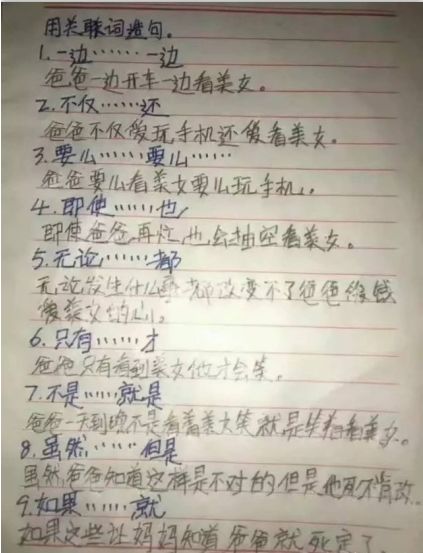 用关联词造句。
1.一边……一边
爸爸一边开车一边看美女。
2.不仅……还
爸爸不仅爱玩手机还爱看美女。
3.要么……要么……
爸爸要么看美女要么玩手机。
4.即使……也
即使爸爸再忙,也会抽空看美女。
5.无论……都
无论发生什么事都改变不了爸爸
爱美女的心。
6.只有……才
爸爸只有看到美女他才会笑。
7.不是……就是
爸爸一天到晚不是看着美女笑就是笑着看美女。
8.虽然……但是
虽然爸爸知道这样是不对的但是他死不肯改。
9.如果……就
如果这些让妈妈知道爸爸就死定了